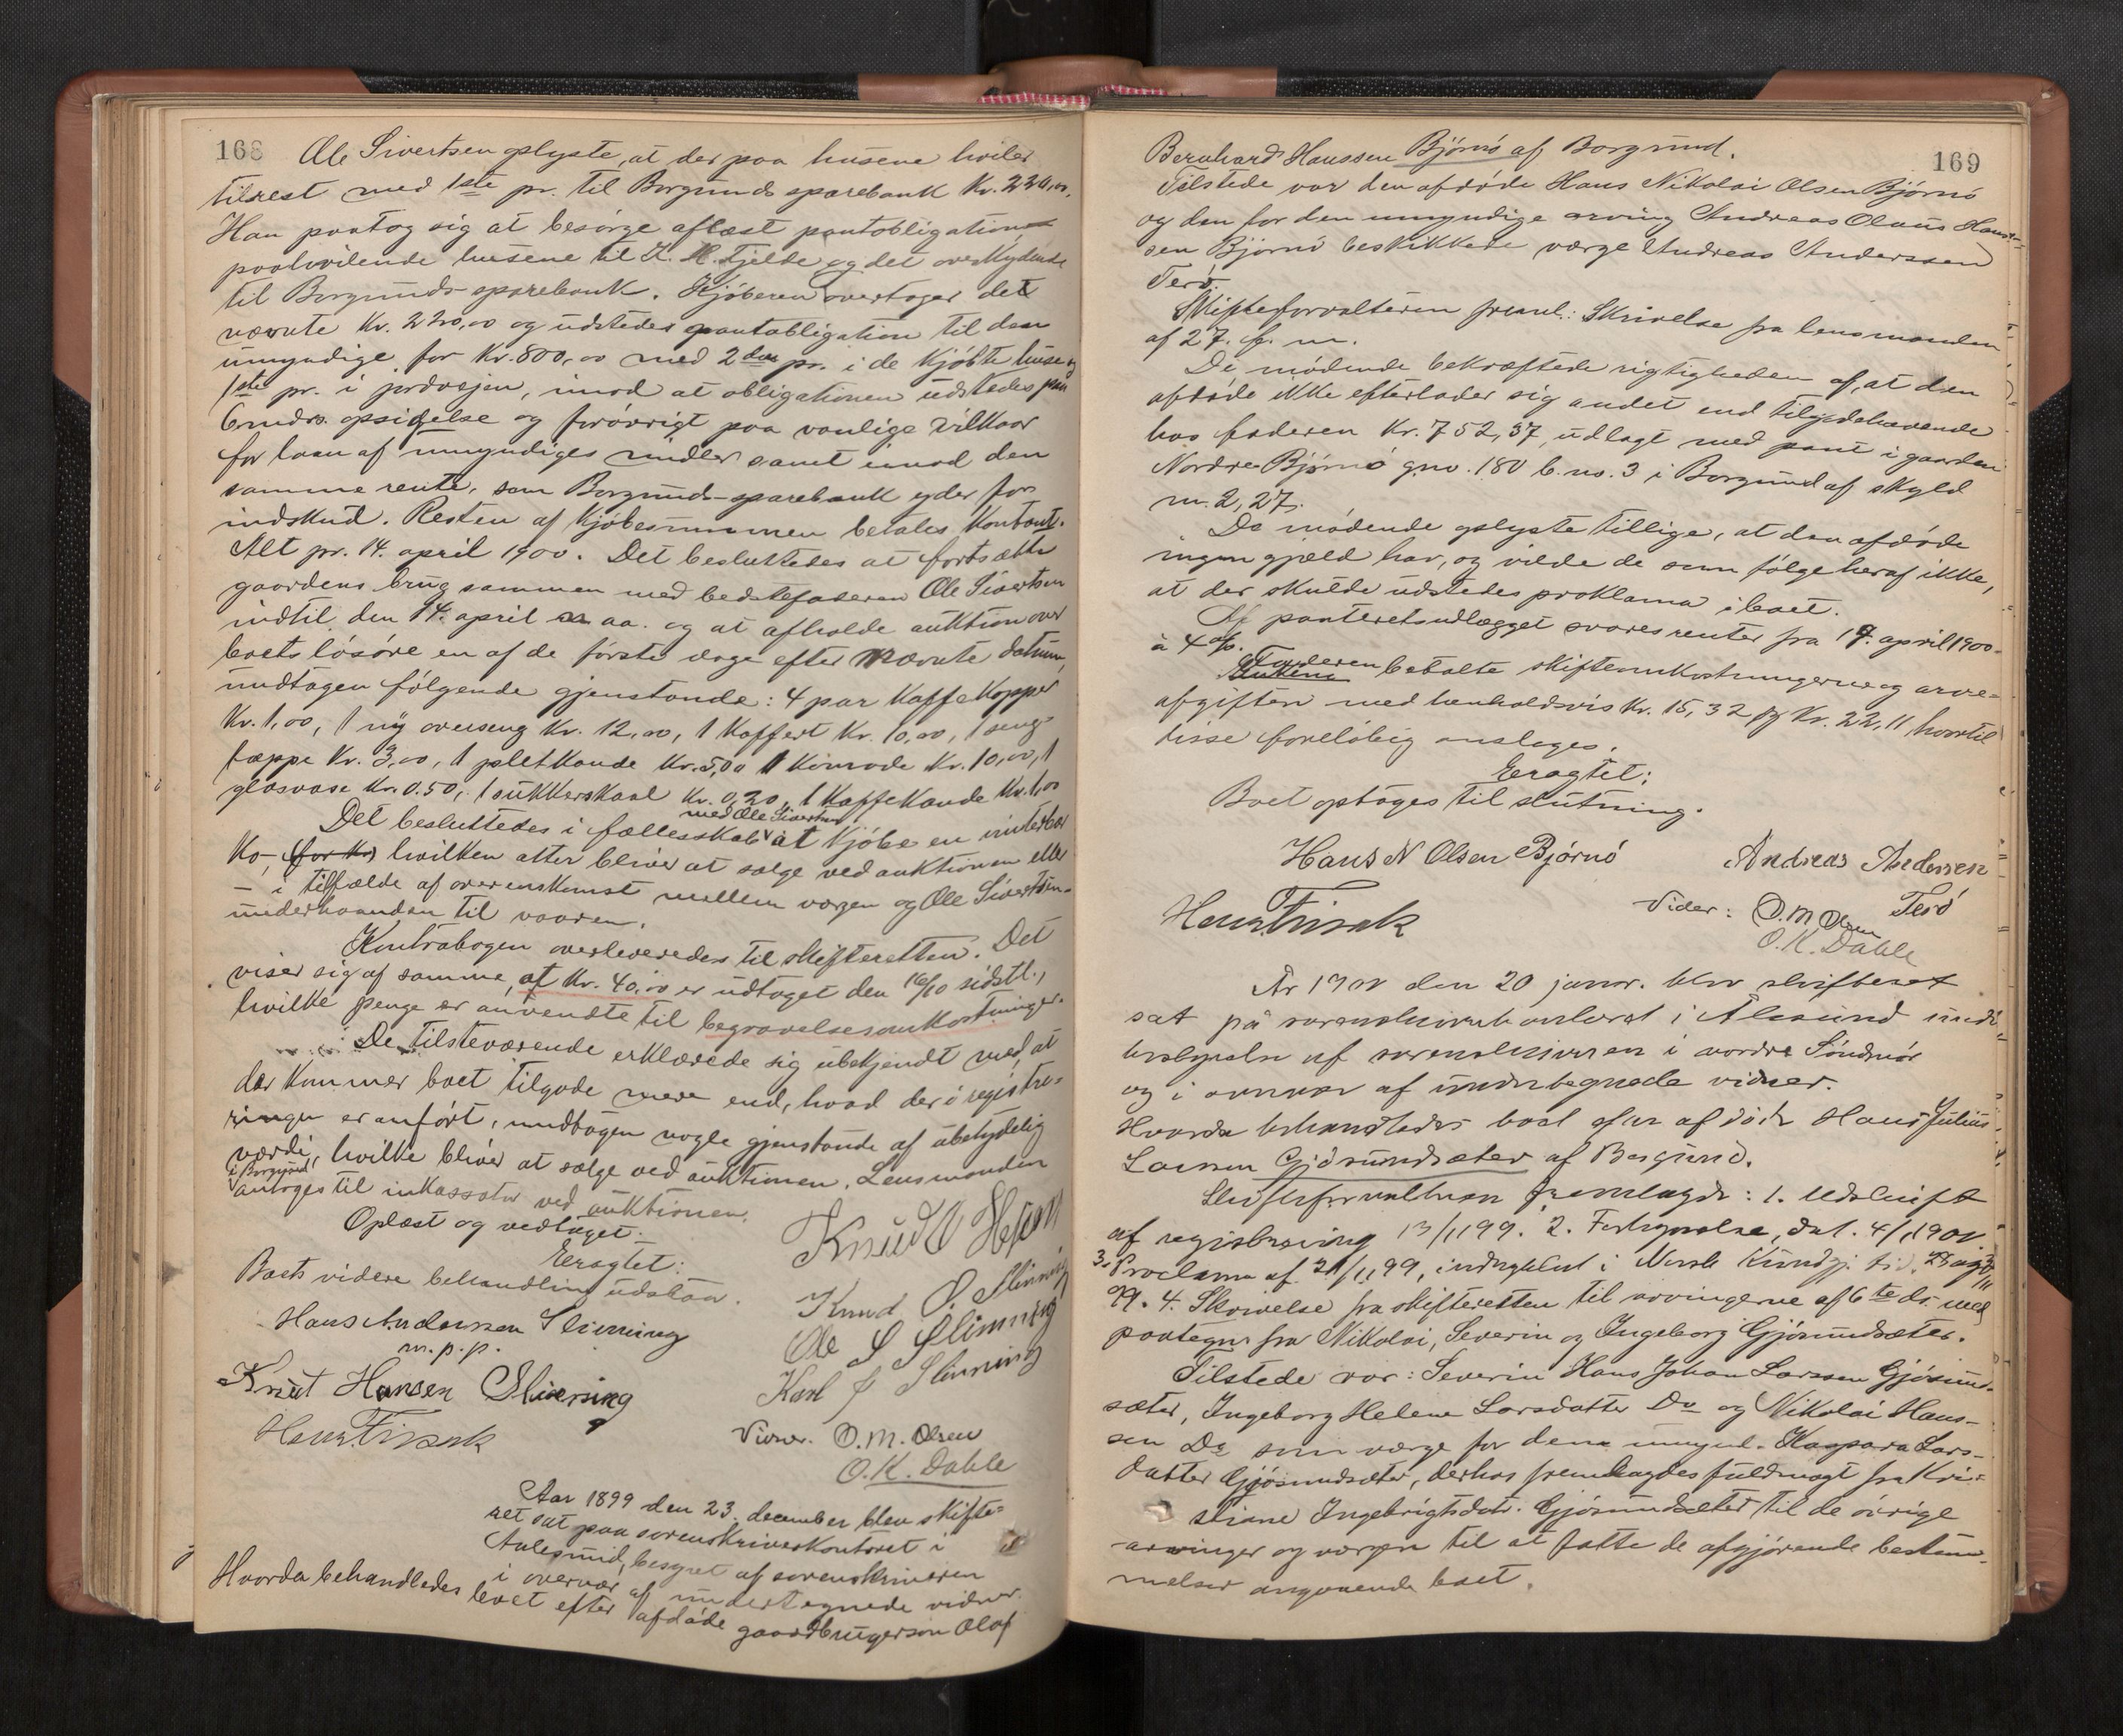 168
Ole Sivertsen oplyste, at der paa husene hviler
tilrest med 1ste pr. til Borgunds sparebank Kr. 220,00.
Han paatog sig at besørge aflæst pantobligationen
paahvilende husene til K. H. Fjelde og det overskydende
til Borgunds sparebank. Kjøberen overtager det
nævnte Kr. 220,00 og udsteder pantobligation til den
umyndige for Kr. 800,00 med 2den pr. i de kjøbte huse og
1ste pr. i jordvejen, imod at obligationen udstedes paa
6 mdrs. opsigelse og forøvrigt paa vanlige vilkaar
for laan af umyndiges midler samt imod den
samme rente, som Borgunds-sparebank yder for
indskud. Resten af Kjøbesummen betales Kontant.
Alt pr. 14. april 1900. Det besluttedes at fortsætte
gaardens brug sammen med bedstefaderen Ole Sivertsen
indtil den 14. april aa. og at afholde auktion over
boets løsøre en af de første dage efter nævnte datum,
undtagen følgende gjenstande: 4 par Kaffekopper
Kr. 1,00, 1 ny overseng Kr. 12,00, 1 Koffert Kr. 10,00, 1 seng-
tæppe Kr. 3,00, 1 pletkande Kr. 5,00 1 Komode Kr. 10,00, 1
glasvase Kr. 0.50, 1 sukkerskaal Kr. 0,20, 1 Kaffekande Kr. 1,00
Det besluttedes i fællesskab med Ole Sivertsen at kjøbe en vinterbær
Ko, (for Kr) hvilken atter bliver at sælge ved auktionen eller
– i tilfælde af overenskomst mellem værgen og Ole Sivertsen –
underhaanden til vaaren.
Kontrabogen overleveredes til skifteretten. Det
viser sig af samme, at Kr. 40,00 er udtaget den 16/10 sidstl.,
hvilke penge er anvendte til begravelsesomkostninger.
De tilstedværende erklærede sig ubekjendt med, at
der kommer boet tilgode mere end, hvad der i registre-
ringen er anført, undtagen nogle gjenstande af ubetydelig
værdi, hvilke bliver at sælge ved auktionen. Lensmanden
i Borgund antoges til inkassator ved auktionen.
Oplæst og vedtaget.
Eragtet:
Boets videre behandling udstaar.
Knud O Slinning
Hans Andersen Slinning
m. p. p.
Ole S Slinning
Karl J Slinning
Knut Hansen Slinning
Hans Frisak
Vidner. O. M. Olsen
O. K. Dahle
Aar 1899 den 23. december blev skifte-
ret sat paa sorenskriverkontoret i
Aalesund, besyret af sorenskriveren
i overvær af undertegnede vidner.
Hvorda behandledes boet efter afdøde gaardbrugersøn Olaf
169
Bernhard Hanssen Bjørnø af Borgund.
Tilstede var den afdøde Hans Nikolai Olsen Bjørnø
og den for den umyndige arving Andreas Olaus Hans-
sen Bjørnø beskikkede værge Andreas Anderssen
Terø.
Skifteforvalteren freml.: Skrivelse fra lensmanden
af 27. f. m.
De mødende bekræftede rigtigheden af, at den
afdøde ikke efterlader sig andet end tilgodehavende
hos faderen Kr. 752,37, udlagt med pant i gaarden
Nordre Bjørnø gno. 180 b. no. 3 i Borgund af skyld
m. 2,27.
De mødende oplyste tillige, at den afdøde
ingen gjæld har, og vilde de som følge heraf ikke,
at der skulde udstedes proklama i boet.
Af panteretsudlægget svares renter fra 17. april 1900
à 4 %.
Faderen betalte skifteomkostningerne og arve-
afgiften med henholdsvis Kr. 15,32 og Kr. 22,11, hvortil
disse foreløbig ansloges.
Eragtet:
Boet optages til slutning.
Hans N Olsen Bjørnø
Andreas Andersen
Terø
Hans Frisak
Vidner: O. M. Olsen
O. K. Dahle
År 1900 den 20 januar. blev skifteret
sat på sorenskriverkontoret i Ålesund under
bestyrelse af sorenskriveren i nordre Søndmør
og i overvær af undertegnede vidner.
Hvorda behandledes boet efter afdøde Hans Julius
Larsen Gjøsundsæter af Borgund.
Skifteforvalteren fremlagde: 1. Udskrift
af registrering 13/11 99. 2. Forkyndelse, dat. 4/1 1900.
3. Proclama af 21/11 99, indrykket i Norsk Kundgj. tid.
99. 4. Skrivelse fra skifteretten til arvingerne af 6te ds. med
paategn. fra Nikolai, Severin og Ingeborg Gjøsundsæter.
Tilstede var: Severin Hans Johan Larssen Gjøsund-
sæter, Ingeborg Helene Larsdatter Do og Nikolai Hans-
sen Do som værge for den umynd. Kaspara Lars-
datter Gjøsundsæter, derhos fremlagdes fuldmagt fra Kri-
stiane Ingebrigtsdatr. Gjøsundsæter til de øvrige
arvinger og værgen til at fatte de afgjørende bestem-
melser angaaende boet.